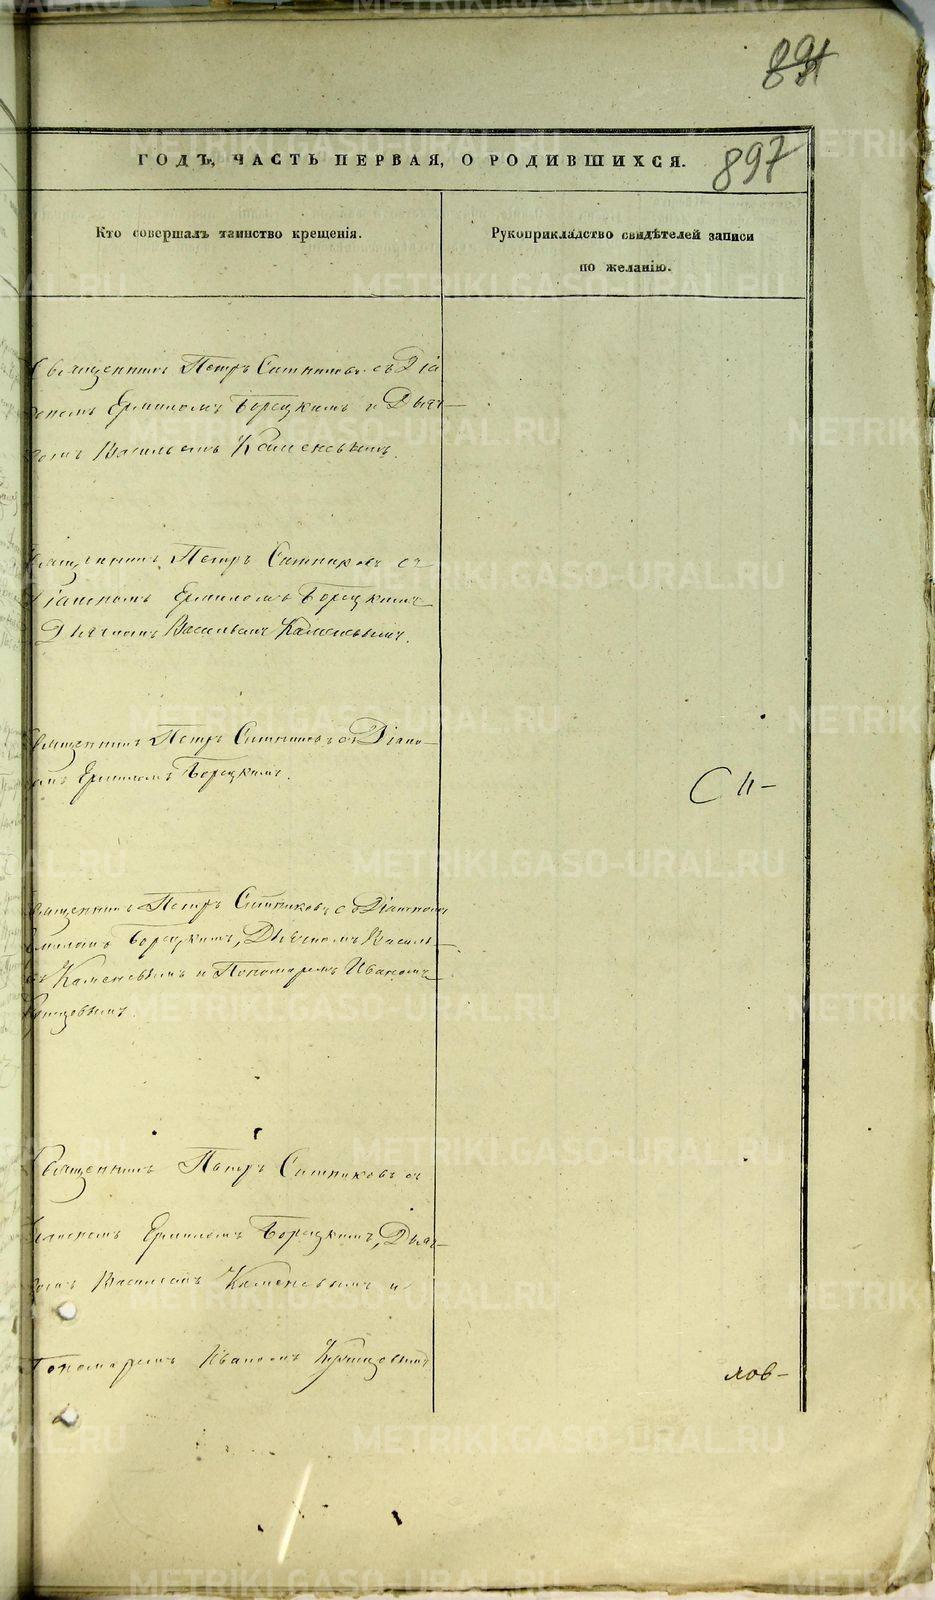 897
ГОДЪ, ЧАСТЬ ПЕРВАЯ, О РОДИВШИХСЯ.
Кто совершалъ таинство крещенія.
Рукоприкладство свидѣтелей записи
по желанію.
Священникъ Петръ Ситниковъ съ Діа
кономъ Ермиломъ Борецкимъ и Дьяч-
комъ Васильемъ Каменскимъ.
Священникъ Петръ Ситниковъ съ
Діакономъ Ермиломъ Борецкимъ
Дьячкомъ Васильемъ Каменскимъ.
Священникъ Петръ Ситниковъ съ Діако-
номъ Ермиломъ Борецкимъ.
С П-
Священникъ Петръ Ситниковъ съ Діакономъ
Ермиломъ Борецкимъ, Дьячкомъ Василь-
емъ Каменскимъ и Пономаремъ Иваномъ
Священникъ Петръ Ситниковъ съ
Діакономъ Ермиломъ Борецкимъ, Дьяч-
комъ Васильемъ Каменскимъ и
Пономаремъ Иваномъ
лов-
METRIKI.GASO-URAL.RU